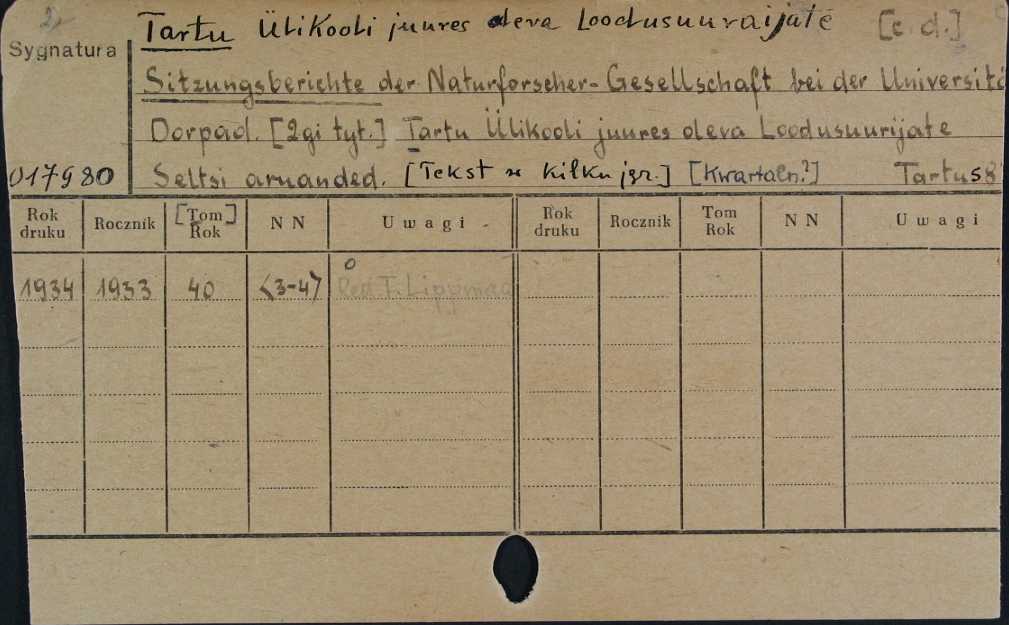 Tartu Ülikooli juures oleva Loodusuuraijate [c.d.]
Sygnatura
Sitzungsberichte der Naturforscher-Gesellschaft bei der Universitä
Dorpad. [2gi tyt.] Tartu Ülikooli juures oleva Loodusuurijate
017980 Seltsi aruanded. [Tekst w kilku jęz.] [Kwartaln.?] Tartu 58
Rok druku Rocznik [Tom] Rok N N Uwagi Rok druku Rocznik Tom Rok N N Uwagi
1934 1933 40 <3-4> Red T. Lippmaa